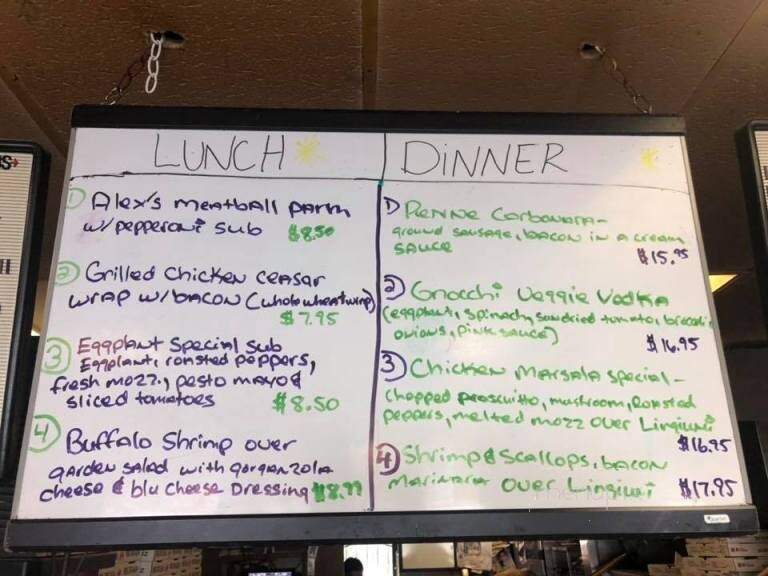 LUNCH
1) Alex's meatball parm
w/pepperoni sub $8.50
2) Grilled Chicken ceasar
wrap w/bacon (whole wheat wrap)
$7.95
3) Eggplant Special sub
Eggplant, roasted peppers,
fresh mozz., pesto mayo &
sliced tomatoes $8.50
4) Buffalo Shrimp over
garden salad with gorganzola
cheese & blu cheese Dressing $8.99
DINNER
1) Penne Carbonara-
ground sausage, bacon in a cream
sauce
$15.95
2) Gnocchi Veggie Vodka
(eggplant, spinach, sundried tomato, broccoli
onions, pink sauce)
$16.95
3) Chicken Marsala special-
chopped proscuitto, mushroom, Roasted
peppers, melted mozz over Linguini
$16.95
4) Shrimp & Scallops, bacon
marinara over Linguini $17.95